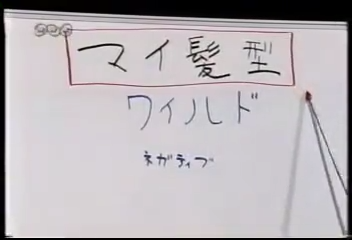 マイ髪型
ワイルド
ネガティブ